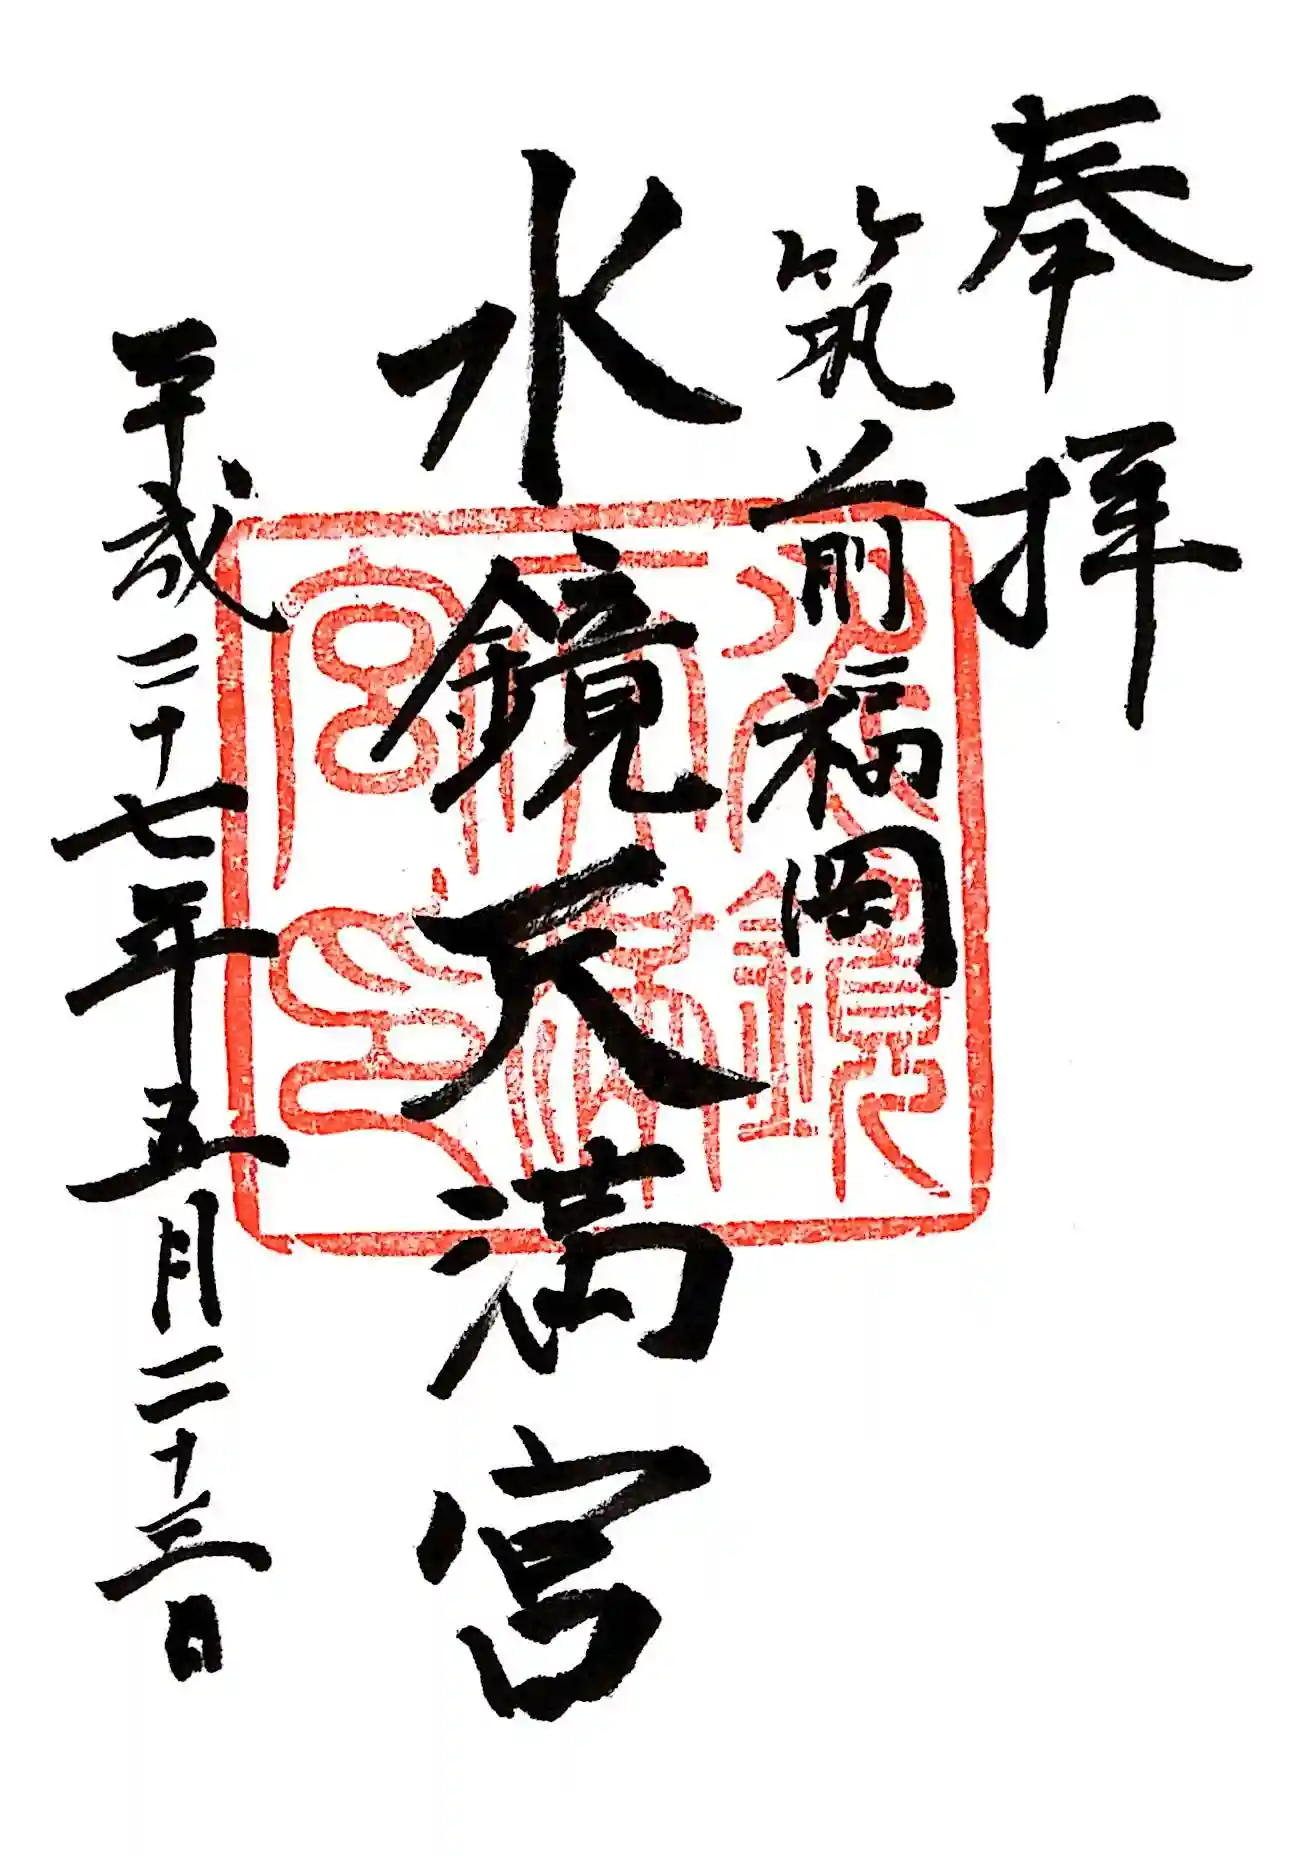 奉拝
筑前福岡
水鏡天満宮
平成二十七年五月二十三日
水鏡
天満
宮印